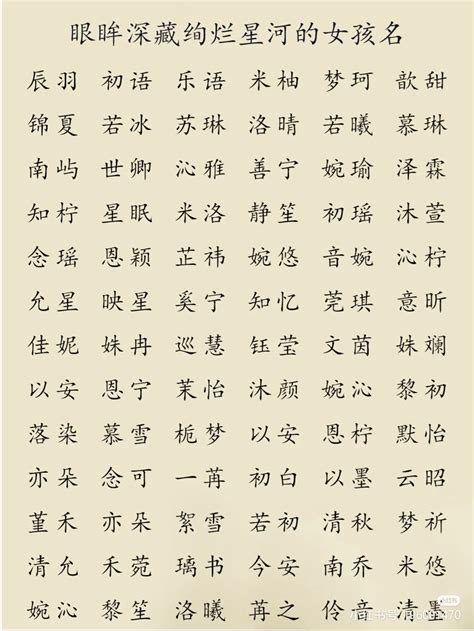 眼眸深藏绚烂星河的女孩名
辰羽 初语 乐语 米柚 梦珂 歆甜
锦夏 若冰 苏琳 洛晴 若曦 慕琳
南屿 世卿 沁雅 善宁 婉瑜 泽霖
知柠 星眠 米洛 静笙 初瑶 沐萱
念瑶 恩颖 芷祎 婉悠 音婉 沁柠
允星 映星 奚宁 知忆 莞琪 意昕
佳妮 姝冉 巡慧 钰莹 文茵 姝斓
以安 恩宁 茉怡 沐颜 婉沁 黎初
落染 慕雪 栀梦 以安 恩柠 默怡
亦朵 念可 一苒 初白 以墨 云昭
堇禾 亦朵 絮雪 若初 清秋 梦祈
清允 禾菀 璃书 今安 南乔 米悠
婉沁 黎笙 洛曦 苒之 伶音 清墨
小红书